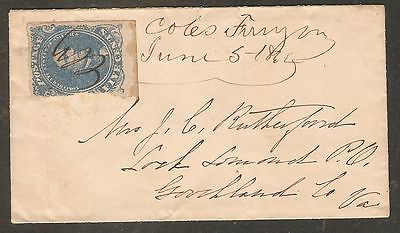 Coles Ferry Va
June 5 1862
Mrs J. C. Rutherford
Lock Lomond P.O.
Goochland Co
Va